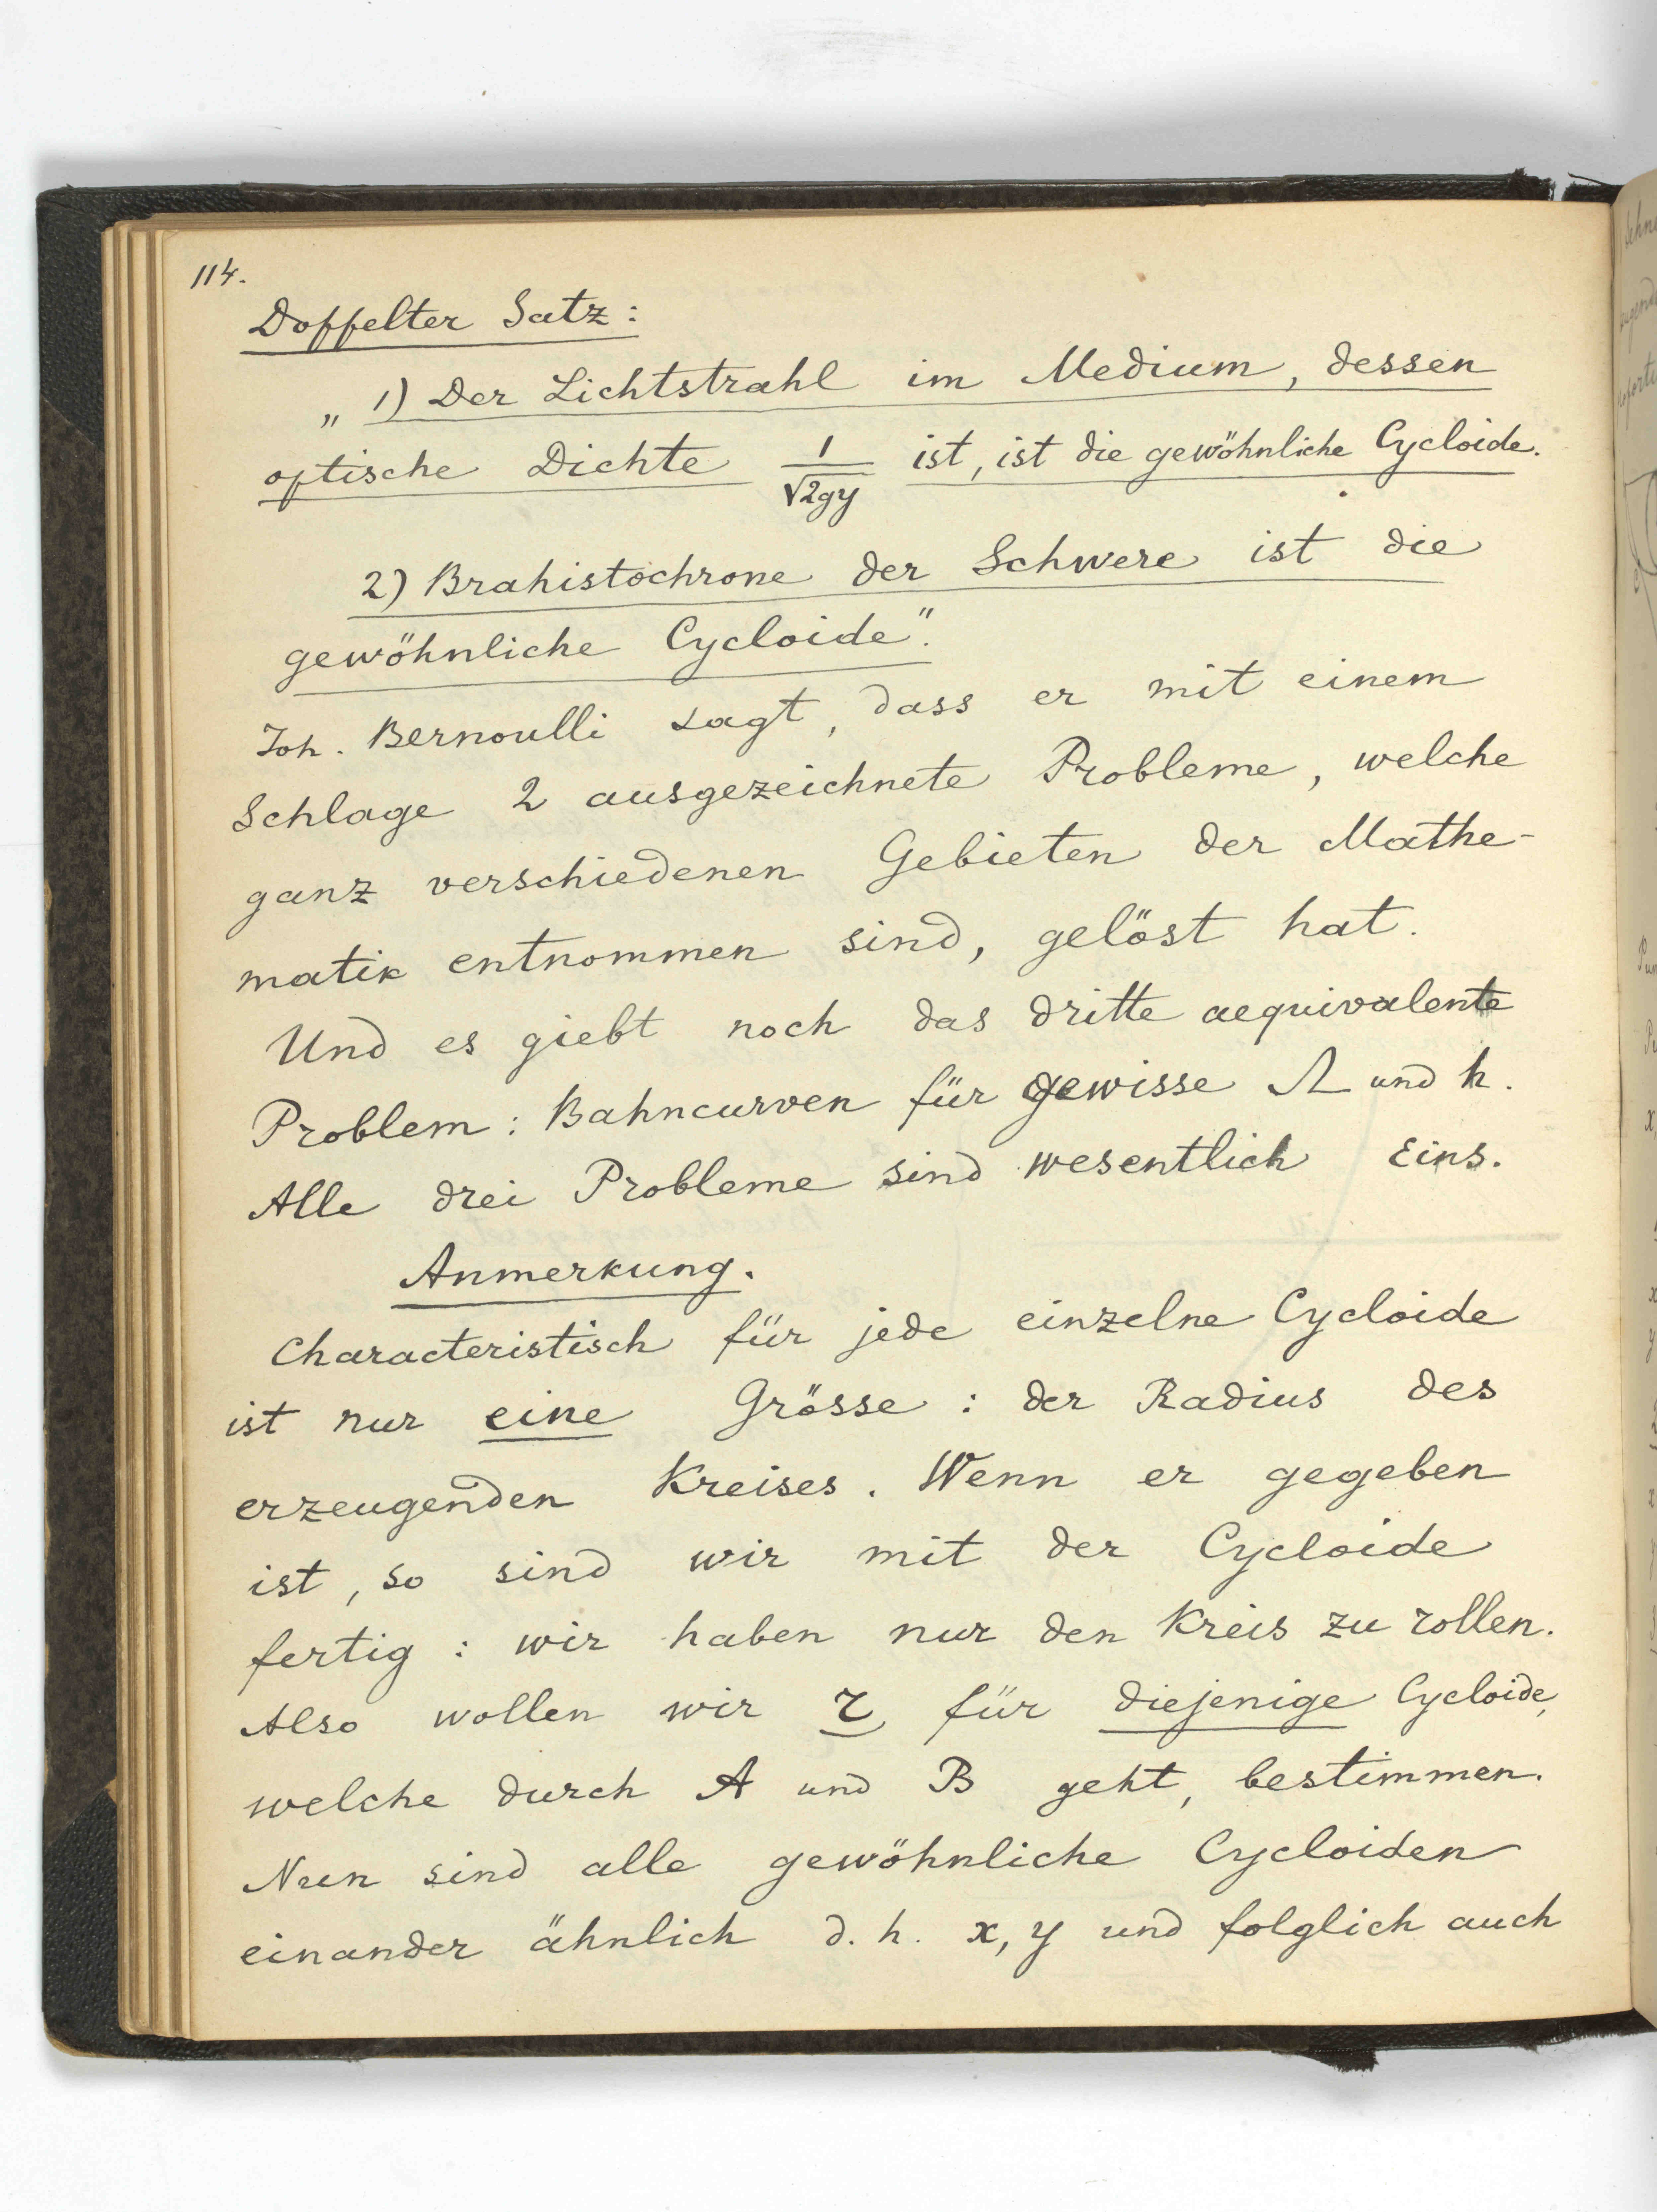 114.
Doppelter Satz:
„ 1) Der Lichtstrahl im Medium, dessen
optische Dichte 1/√2gy ist, ist die gewöhnliche Cycloide.
2) Brahistochrone der Schwere ist die
gewöhnliche Cycloide“.
Joh. Bernoulli sagt, dass er mit einem
Schlage 2 ausgezeichnete Probleme, welche
ganz verschiedenen Gebieten der Mathe-
matik entnommen sind, gelöst hat.
Und es giebt noch das dritte aequivalente
Problem: Bahncurven für gewisse Ω und h.
Alle drei Probleme sind wesentlich Eins.
Anmerkung.
Characteristisch für jede einzelne Cycloide
ist nur eine Grösse: der Radius des
erzeugenden Kreises. Wenn er gegeben
ist, so sind wir mit der Cycloide
fertig: wir haben nur den Kreis zu rollen.
Also wollen wir r für diejenige Cycloide,
welche durch A und B geht, bestimmen.
Nun sind alle gewöhnliche Cycloiden
einander ähnlich d. h. x, y und folglich auch